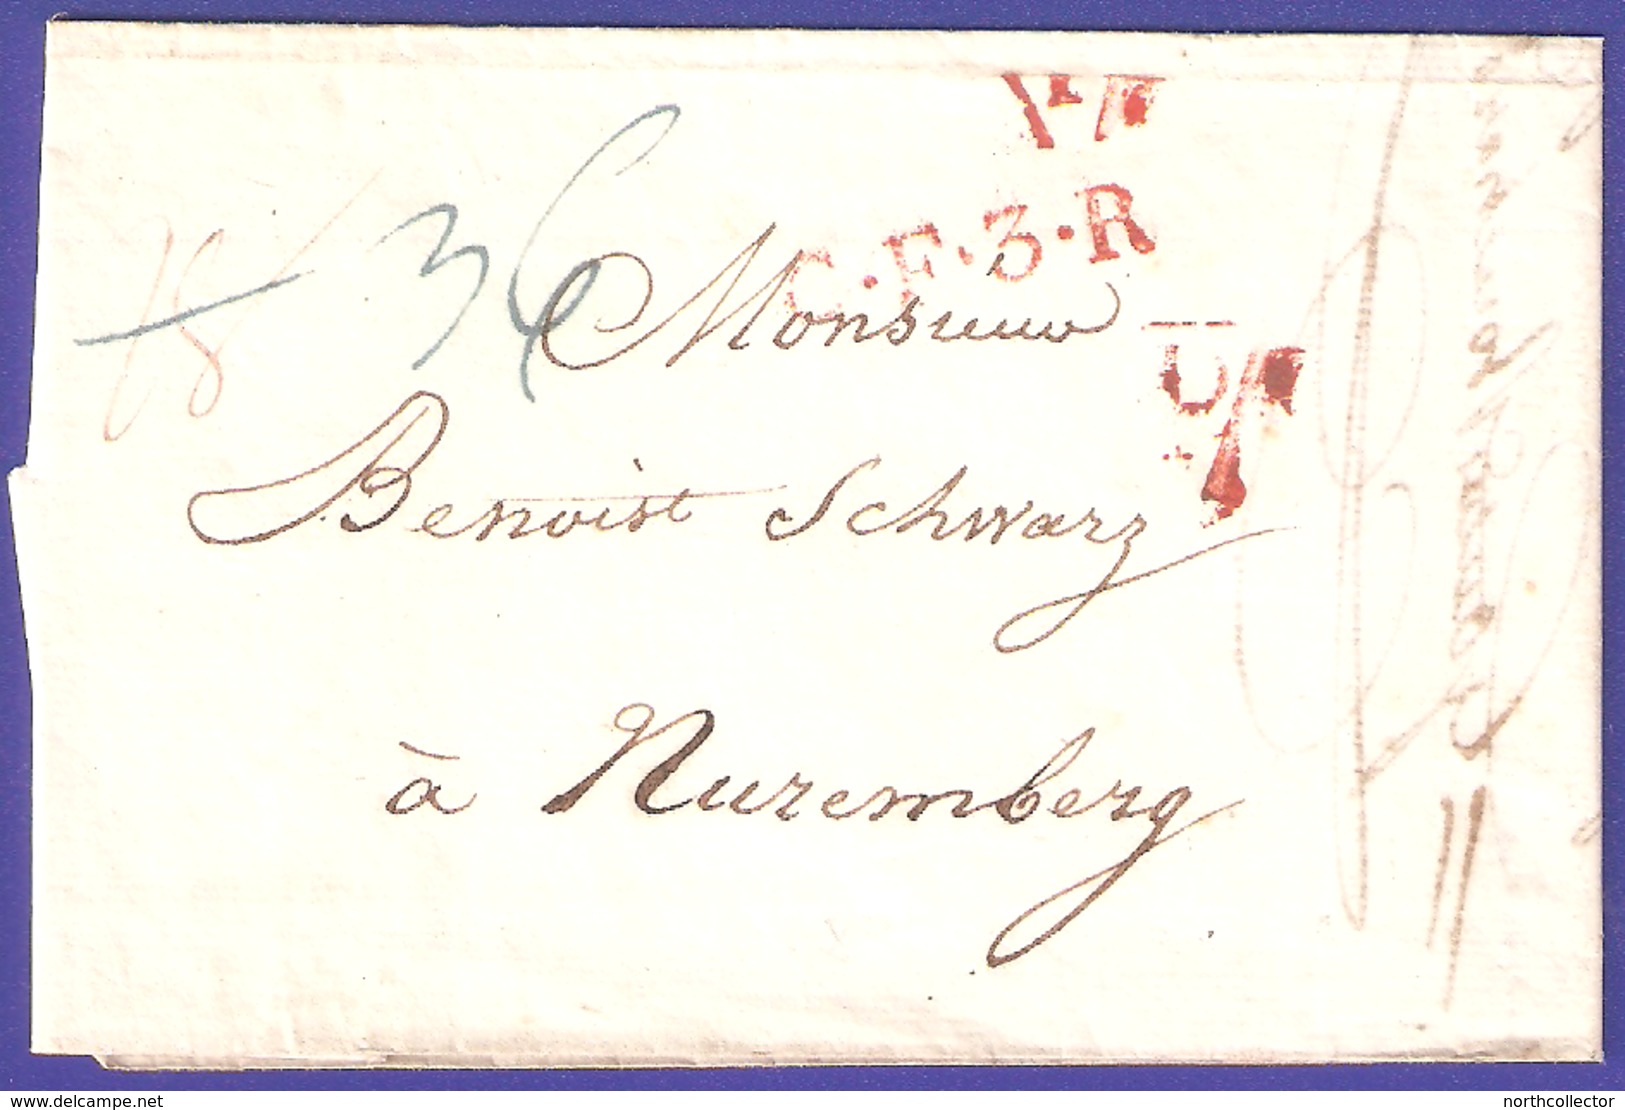 C.F.3.R
36
Monsieur
Benoist Schwarz
à Nuremberg
www.delcampe.net
northcollector